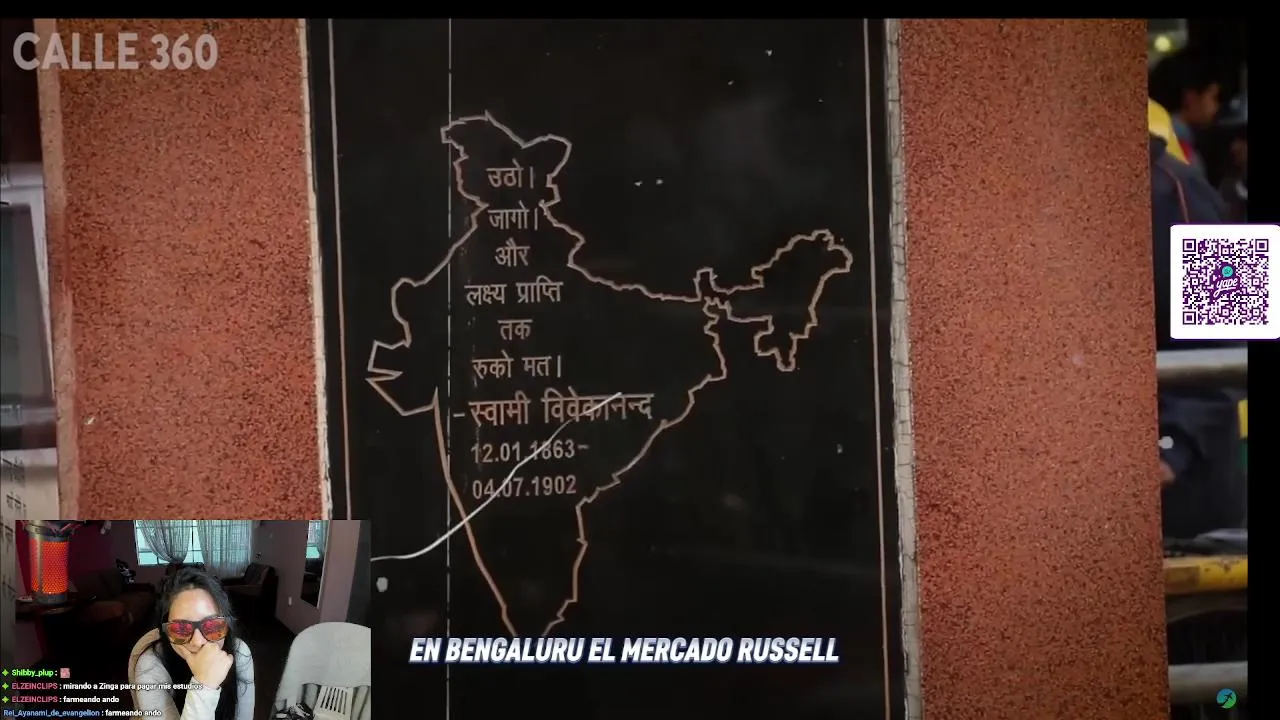 CALLE 360
उठो।
जागो।
और
लक्ष्य प्राप्ति
तक
रुको मत।
-स्वामी विवेकानन्द
12.01.1863-
04.07.1902
yape
EN BENGALURU EL MERCADO RUSSELL
Shibby_plup :
ELZEINCLIPS : mirando a Zinga para pagar mis estudios
ELZEINCLIPS : farmeando ando
Rei_Ayanami_de_evangelion : farmeando ando